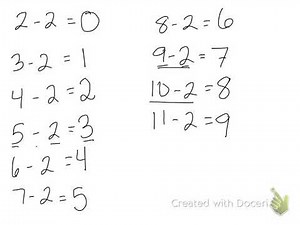 2-2=0
3-2=1
4-2=2
5-2=3
6-2=4
7-2=5
8-2=6
9-2=7
10-2=8
11-2=9
Created with Doceri